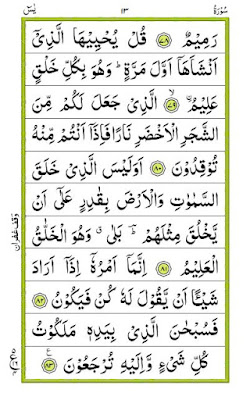 سُوۡرَةُ ١٣ يٰسٓ
رَمِيۡمٌ ﴿۷۸﴾ قُلۡ يُحۡيِيۡهَا الَّذِىۡۤ
اَنۡشَاَهَاۤ اَوَّلَ مَرَّةٍ ؕ وَهُوَ بِكُلِّ خَلۡقٍ
عَلِيۡمُ ۙ ﴿۷۹﴾ الَّذِىۡ جَعَلَ لَكُمۡ مِّنَ
الشَّجَرِ الۡاَخۡضَرِ نَارًا فَاِذَاۤ اَنۡتُمۡ مِّنۡهُ
تُوۡقِدُوۡنَ ﴿۸۰﴾ اَوَلَيۡسَ الَّذِىۡ خَلَقَ
السَّمٰوٰتِ وَالۡاَرۡضَ بِقٰدِرٍ عَلٰۤى اَنۡ
يَّخۡلُقَ مِثۡلَهُمۡ ؕ بَلٰى وَهُوَ الۡخَلّٰقُ
الۡعَلِيۡمُ ﴿۸۱﴾ اِنَّمَاۤ اَمۡرُهٗۤ اِذَاۤ اَرَادَ
شَيۡئًـا اَنۡ يَّقُوۡلَ لَهٗ كُنۡ فَيَكُوۡنُ ﴿۸۲﴾
فَسُبۡحٰنَ الَّذِىۡ بِيَدِهٖ مَلَكُوۡتُ
كُلِّ شَىۡءٍ وَّاِلَيۡهِ تُرۡجَعُوۡنَ ﴿۸۳﴾
وقف غفران